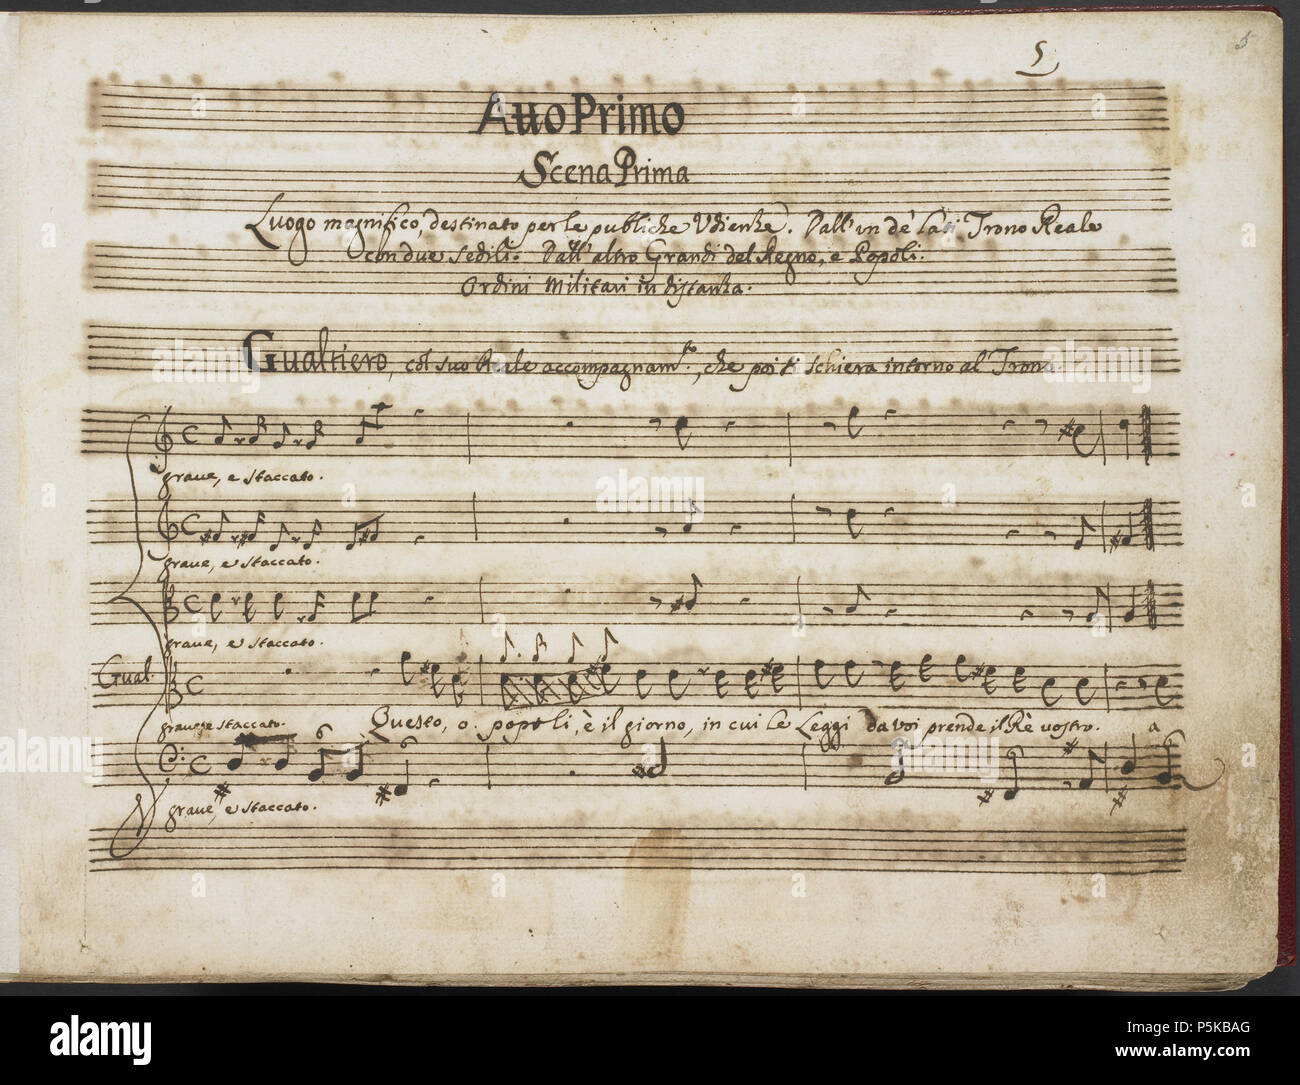 5
5
Atto Primo
Scena Prima
Luogo magnifico, destinato per le pubbliche Vdienze. Dall'un de' lati Trono Reale
con due sedili. Dall'altro Grandi del Regno, e Popoli.
Ordini Militari in distanza.
Gualtiero, col suo Reale accompagnam.to, che poi si schiera intorno al Trono.
grave, e staccato.
grave, e staccato.
grave, e staccato.
Gual.
grave, e staccato.
Questo, o popoli, è il giorno, in cui le Leggi da voi prende il Rè vostro. a
grave, e staccato.
alamy
Image ID: P5KBAG
www.alamy.com